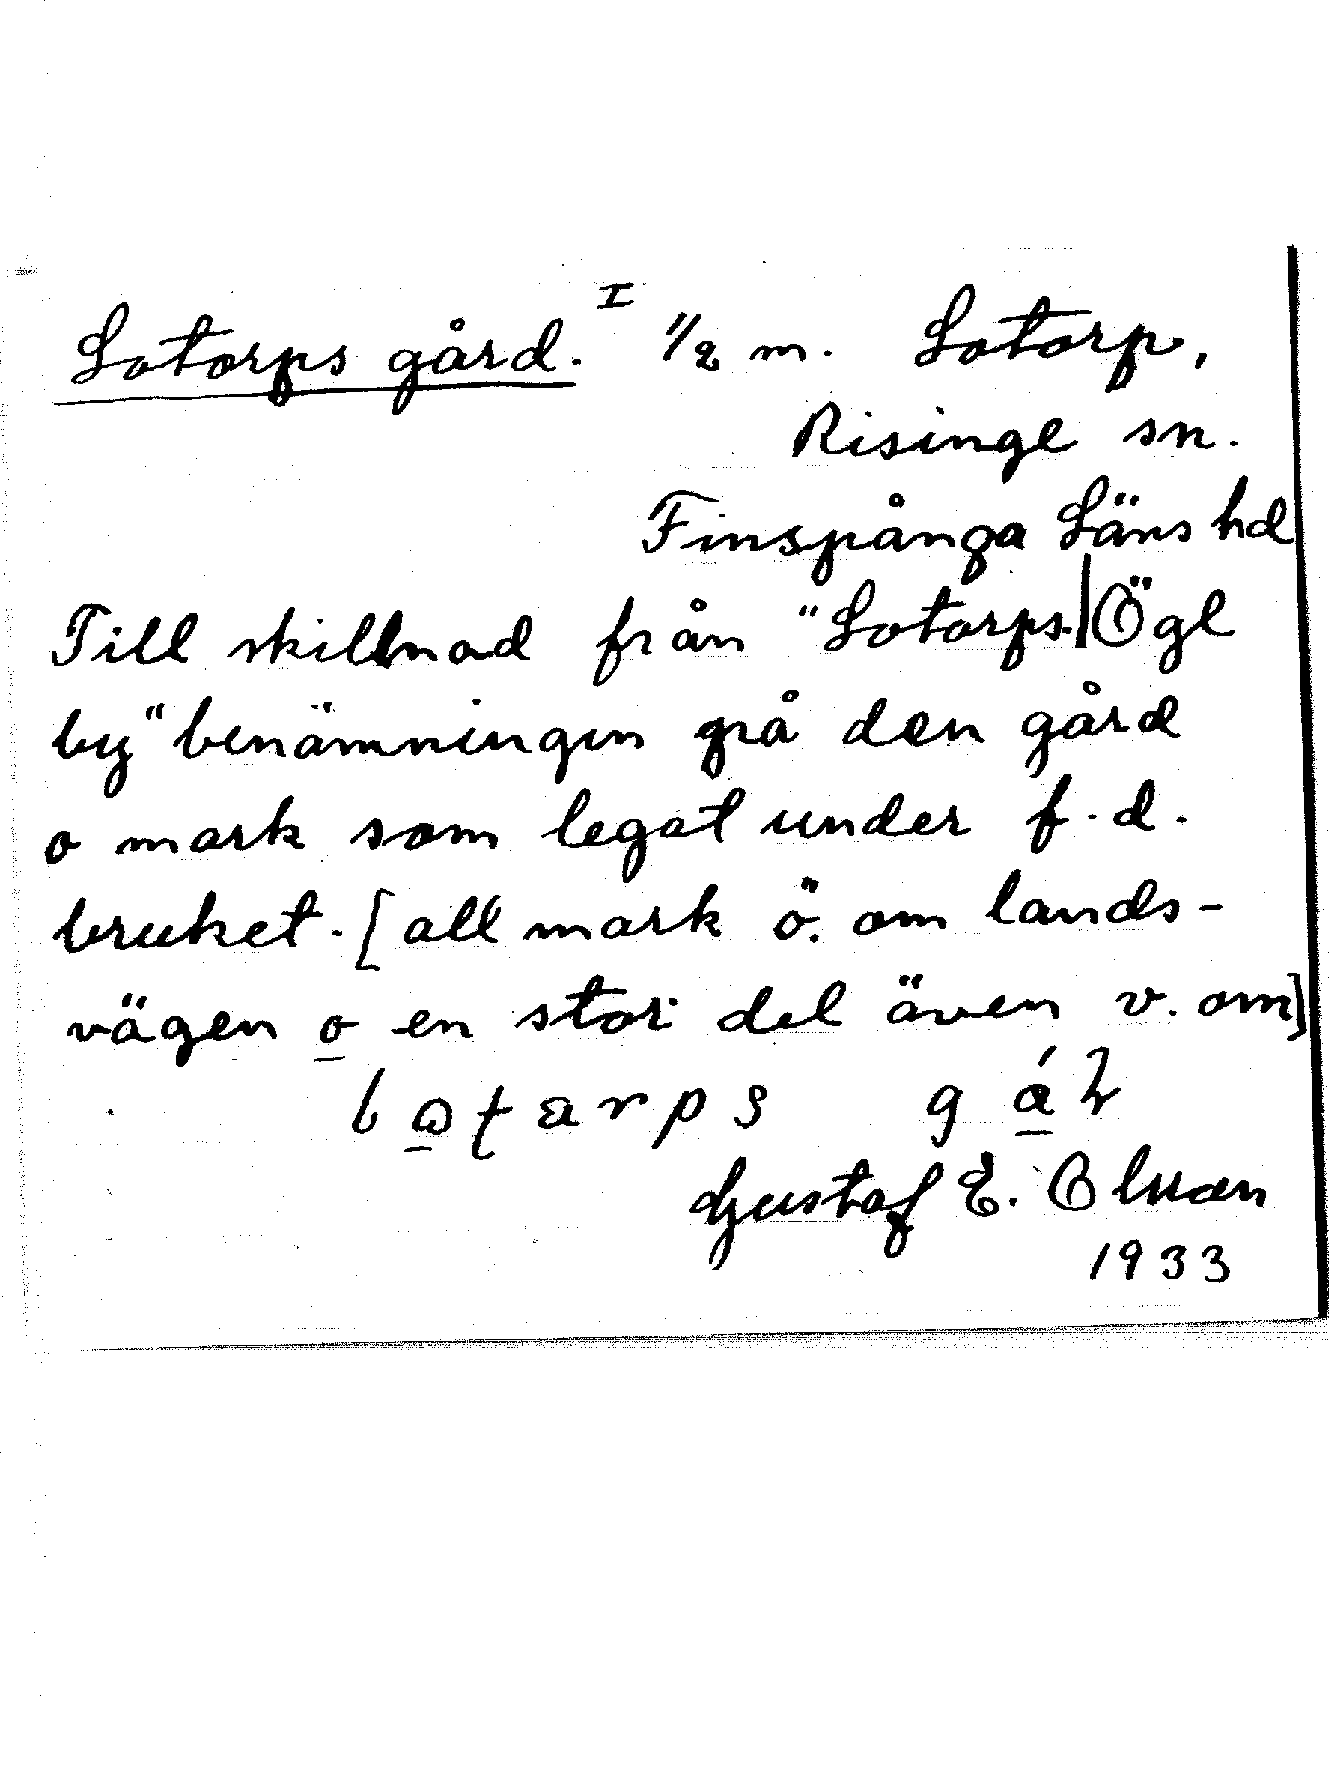 Lotorps gård. I 1/2 m. Lotorp,
Risinge sn.
Finspånga Läns hd
Till skillnad från "Lotorps | Ögl
by" benämningen på den gård
o mark som legat under f.d.
bruket. [all mark ö. om lands-
vägen o en stor del även v. om]
Gustaf E. Olsson
1933